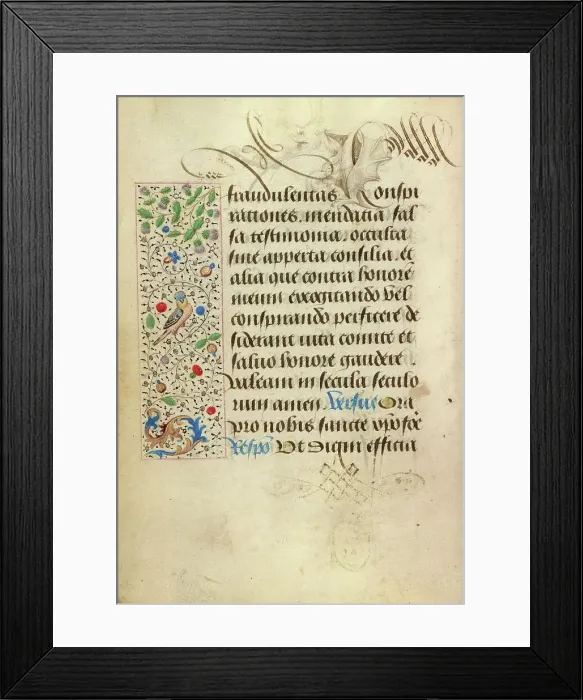 fraudulentas Conspi
rationes. mendacia fal
sa testimonia. occulta
siue apperta consilia. et
alia que contra honore
meum exxogitando vel
conspirando perficere de
siderant vita comite et
saluo honore gaudere
valeam in secula seculo
rum amen. Versus Ora
pro nobis sancte xpofore
Respo Vt digni efficia